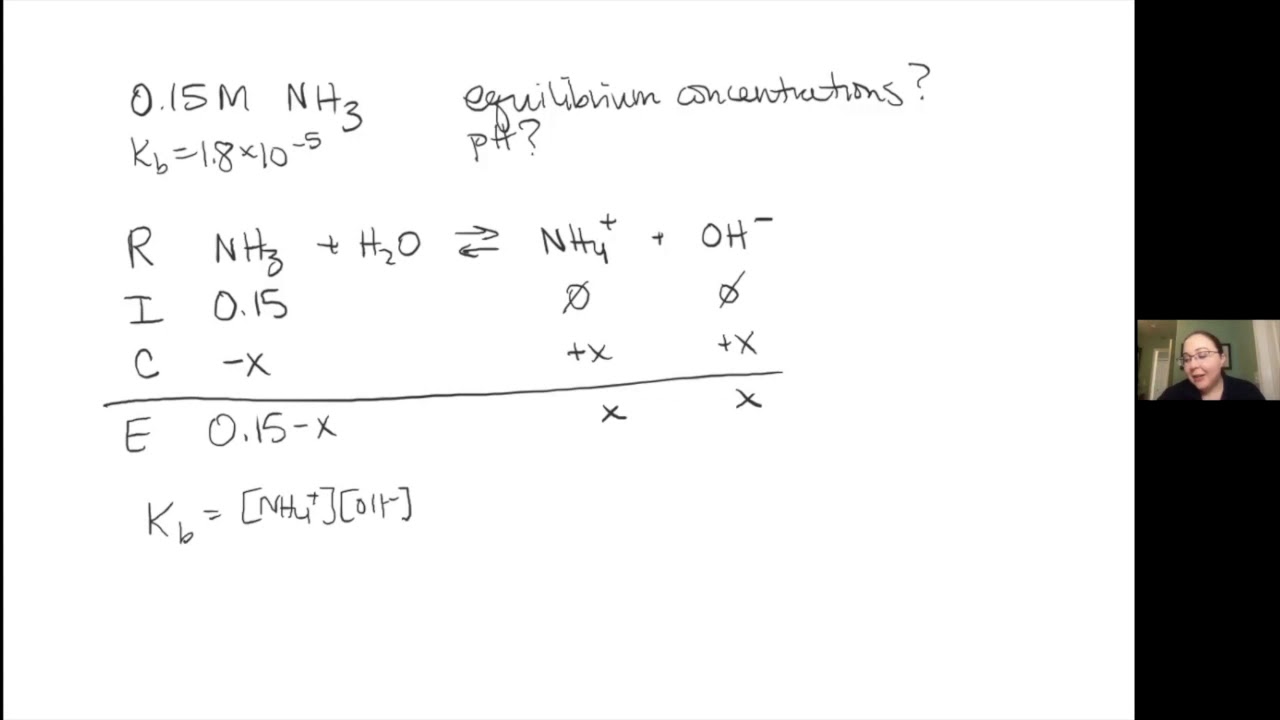 0.15M NH₃ equilibrium concentrations?
K_b=1.8×10⁻⁵ pH?
R NH₃ + H₂O ⇌ NH₄⁺ + OH⁻
I 0.15 ∅ ∅
C -x +x +x
E 0.15-x x x
K_b = [NH₄⁺][OH⁻]